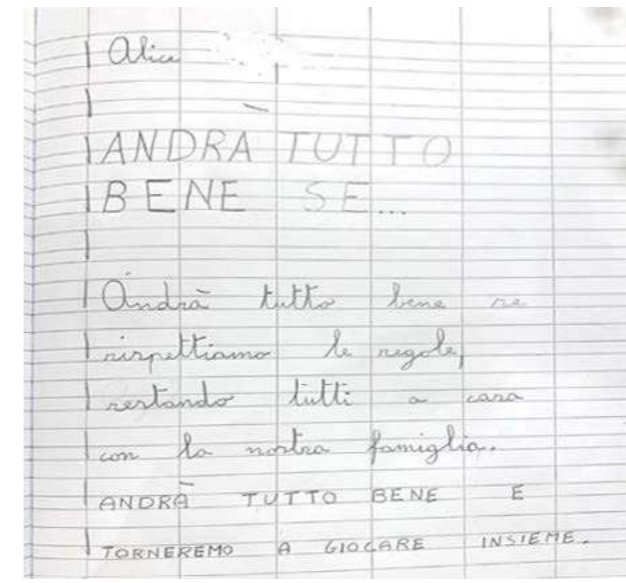 Alice
ANDRÀ TUTTO
BENE SE...
Andrà tutto bene se
rispettiamo le regole,
restando tutti a casa
con la nostra famiglia.
ANDRÀ TUTTO BENE E
TORNEREMO A GIOCARE INSIEME.